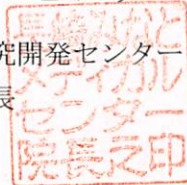 究開発センター
長
メディカル
センター
院長之印